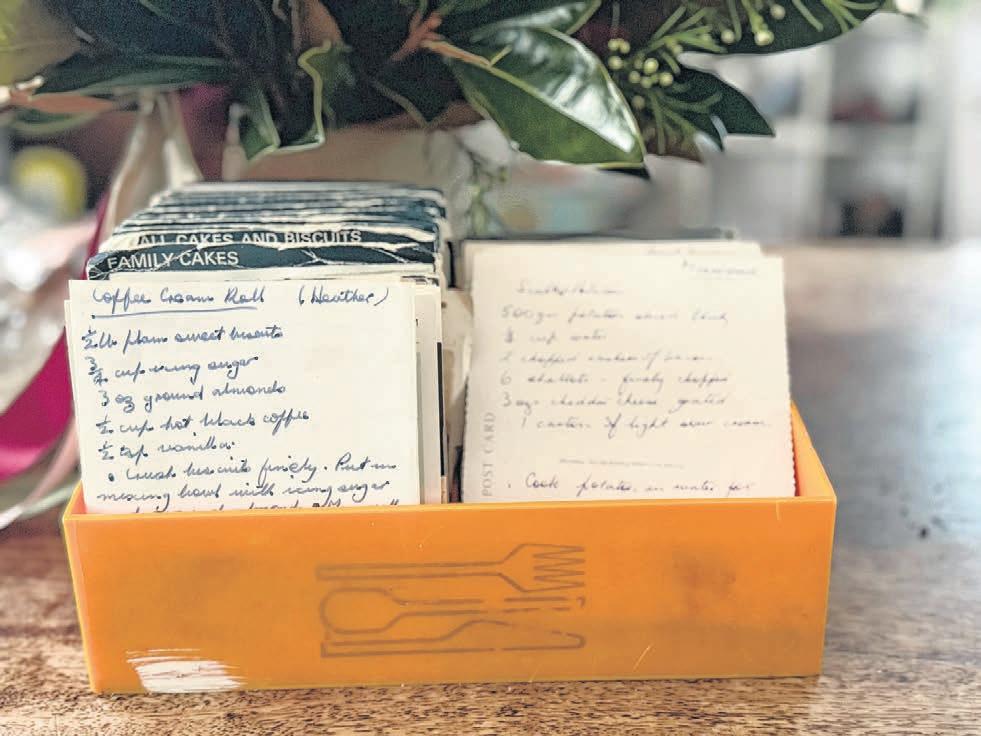 ALL CAKES AND BISCUITS
FAMILY CAKES
Coffee Cream Roll (Heather)
½ lb plain sweet biscuits
¾ cup icing sugar
3 oz ground almonds
½ cup hot black coffee
½ tsp vanilla.
. Crush biscuits finely. Put in
mixing bowl with icing sugar
500gr potatoes
cup water
2 chopped rashers of bacon
6 shallots - finely chopped
3 ozs cheddar cheese grated
1 carton of light sour cream
POST CARD
. Cook potatoes in water for